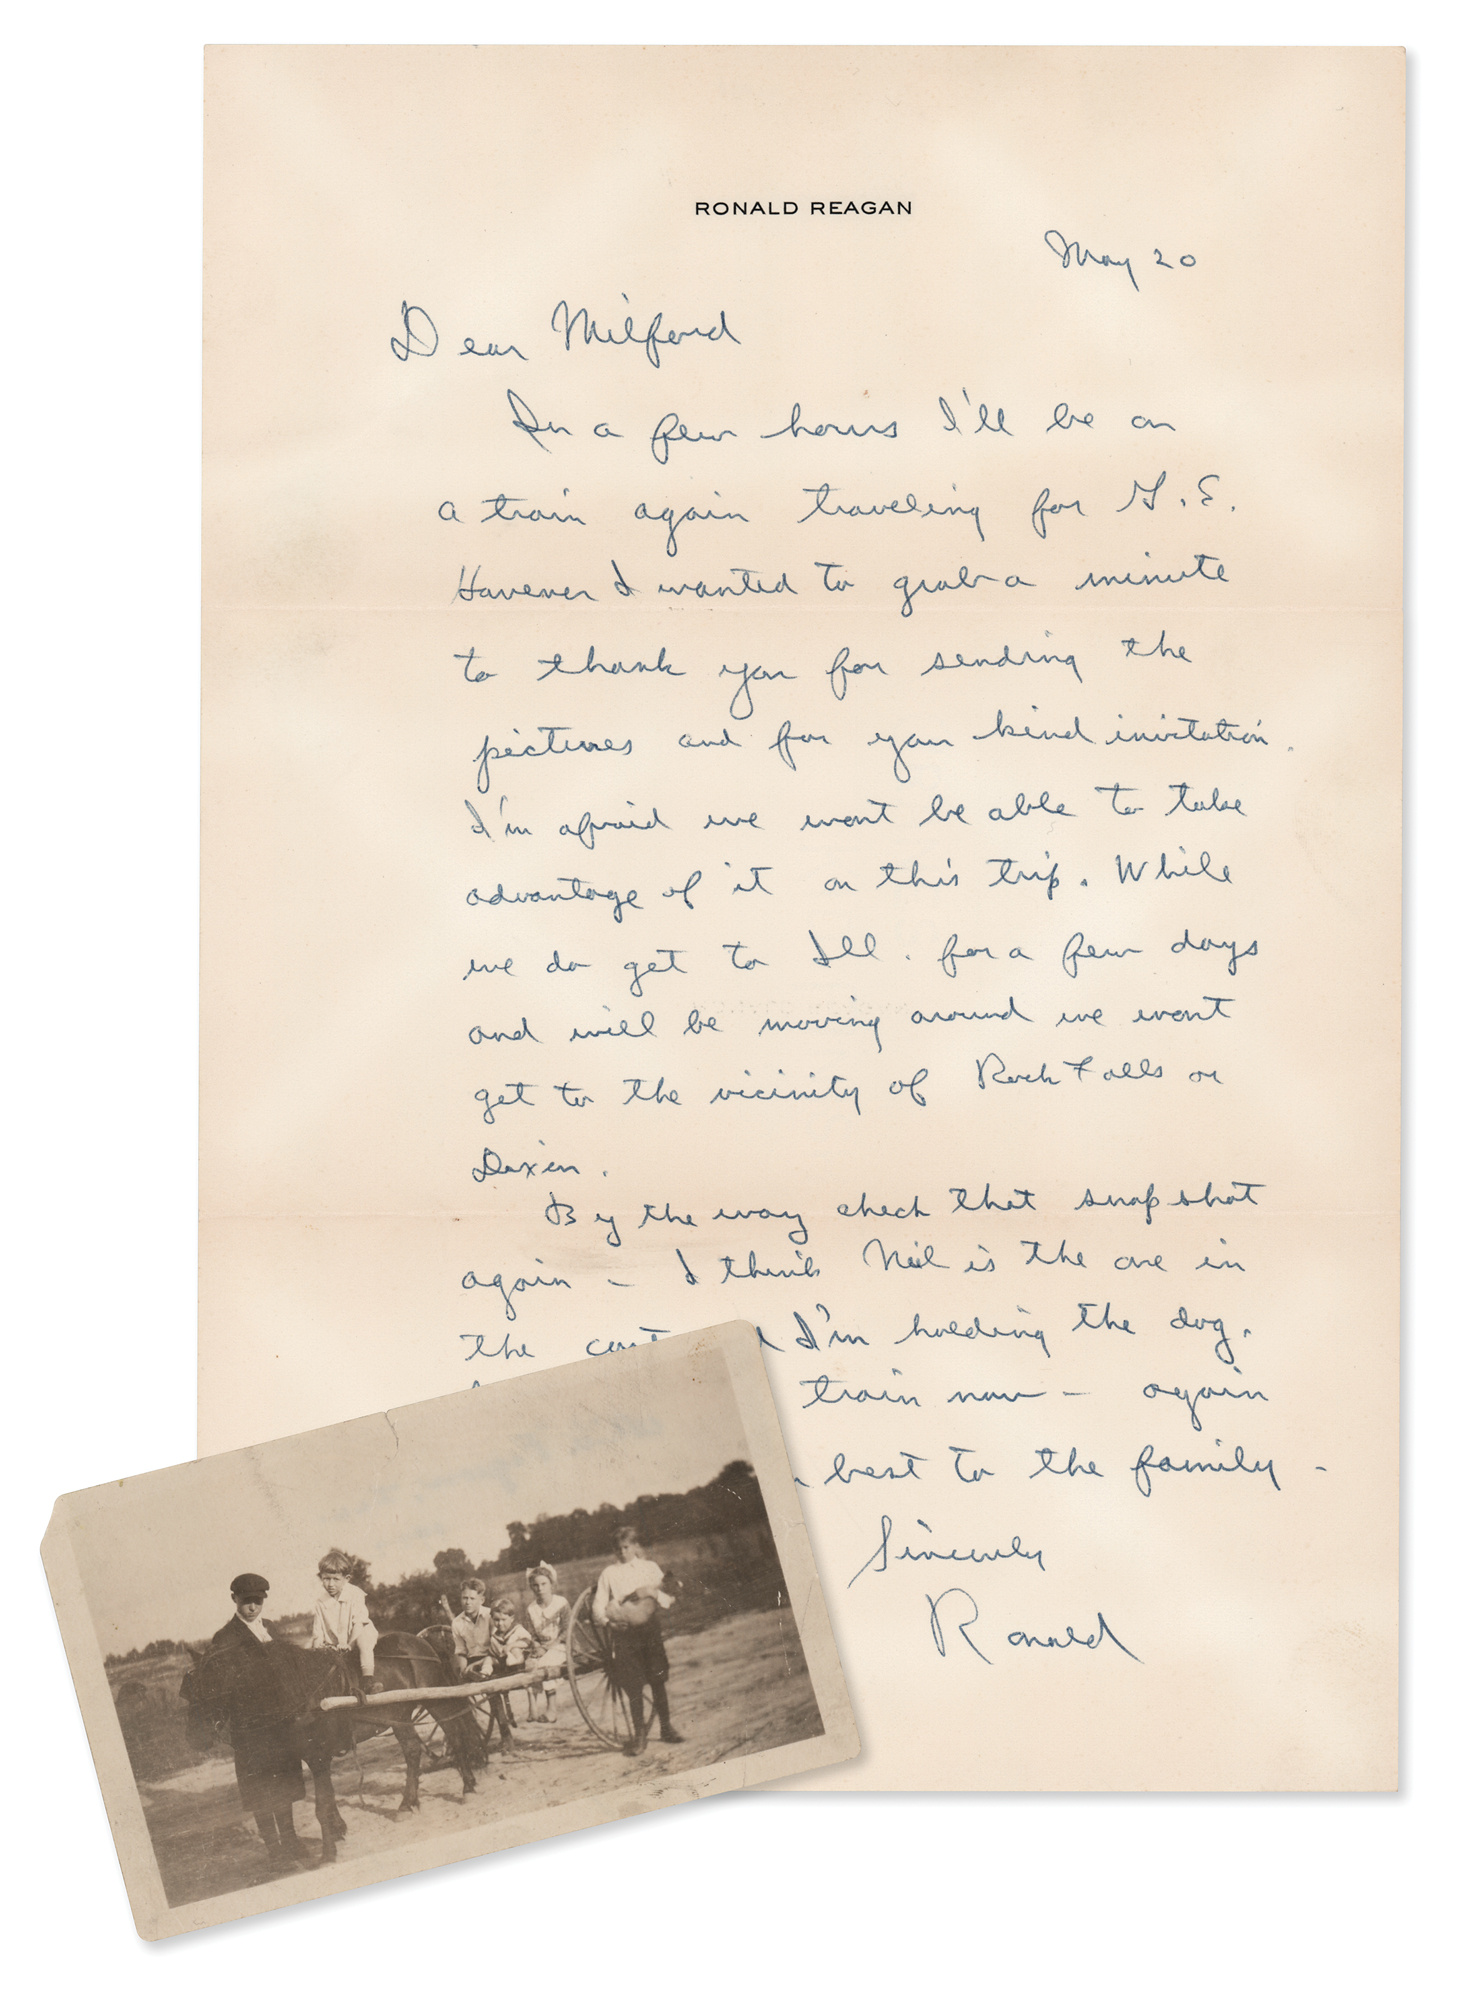 RONALD REAGAN
May 20
Dear Milford
In a few hours I'll be on
a train again traveling for G.E.
However I wanted to grab a minute
to thank you for sending the
pictures and for your kind invitation.
I'm afraid we wont be able to take
advantage of it on this trip. While
we do get to Ill. for a few days
and will be moving around we wont
get to the vicinity of Rock Falls or
Dixon.
By the way check that snap shot
again – I think Neil is the one in
the I'm holding the dog.
train now – again
best to the family –
Sincerely
Ronald